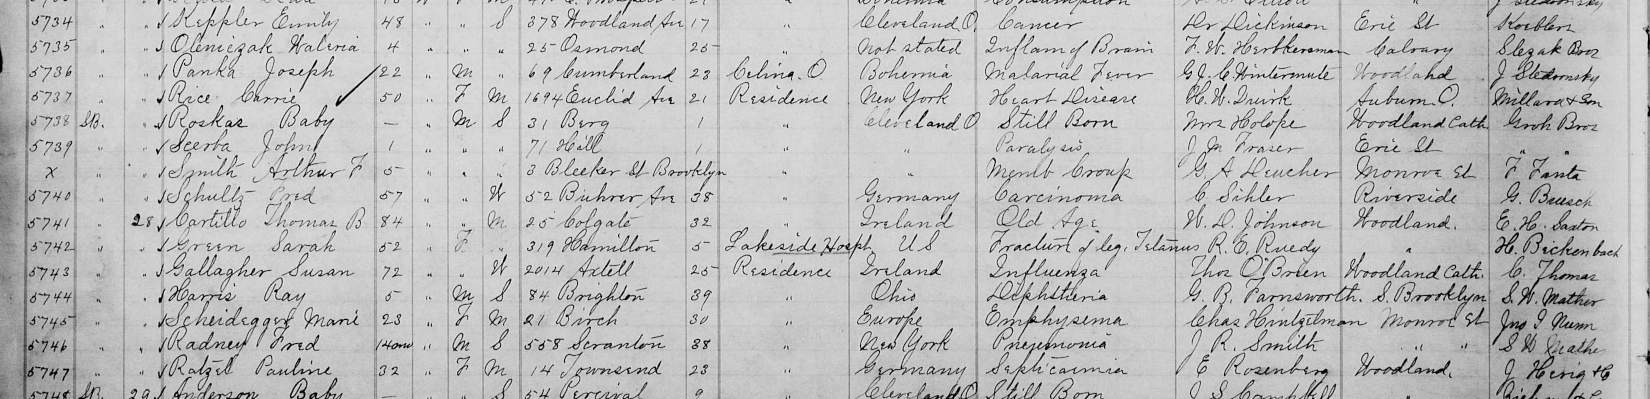 5734 " " Keppler Emily 48 " " S 378 Woodland Av 17 " Cleveland O. Cancer Dr Dickinson Erie St Koebler
5735 " " Oleniczak Valeria 4 " " " 25 Osmond 25 " Not stated Inflam of Brain F. W. Hertkersman Calvary Slezak Bros
5736 " " Panka Joseph 22 " M " 69 Cumberland 23 Celina. O Bohemia Malarial Fever G. J. C. Wintermute Woodland J Stedronsky
5737 " " Rice Carrie 50 " F M 1694 Euclid Ave 21 Residence New York Heart Disease H. W. Quirk Auburn O. Millard & Son
5738 SB. " Roskas Baby — " M S 31 Berg 1 " Cleveland O Still Born Mrs Holope Woodland Cath Groh Bros
5739 " " Scerba John 1 " " " 71 Hill 1 " " Paralysis J M Fraser Erie St " "
x " " Smith Arthur F 5 " " " 3 Bleeker St Brooklyn " " Memb Croup G. A Deucher Monroe St F Fanta
5740 " " Schultz Fred 57 " " W 52 Buhrer Ave 38 " Germany Carcinoma C. Sihler Riverside G. Buesch
5741 " 28 Cartillo Thomas B 84 " " M 25 Colgate 32 " Ireland Old Age W. D. Johnson Woodland. E. H. Saxton
5742 " " Green Sarah 52 " F " 319 Hamilton 5 Lakeside Hospt U S Fracture of leg. Tetanus R. E. Ruedy " H. Beckenbach
5743 " " Gallagher Susan 72 " " W 2014 Axtell 25 Residence Ireland Influenza Thos O'Brien Woodland Cath. C. Thomas
5744 " " Harris Ray 5 " M S 84 Brighton 39 " Ohio Diphtheria G. B. Farnsworth. S. Brooklyn S. W. Mather
5745 " " Scheidegger Marie 23 " F M 21 Birch 30 " Europe Emphysema Chas Hintzelman Monroe St Jno I Nunn
5746 " " Radney Fred " M S 558 Scranton 38 " New York Pneumonia J. R. Smith " " S W Mathe
5747 " " Ratzel Pauline 32 " F M 14 Townsend 23 " Germany Septicaimia E Rosenberg Woodland. J Henig & C
5748 SB. 29 Anderson Baby — " S 54 Percival 9 " Cleveland O Still Born J S Campbell "